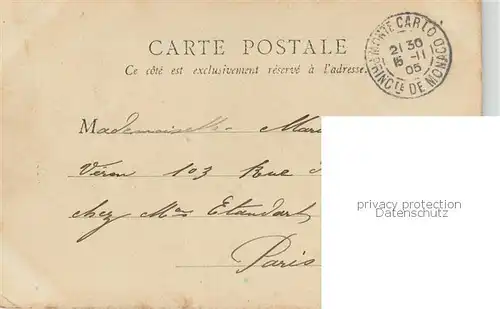 CARTE POSTALE
Ce côté est exclusivement réservé à l'adresse.
MONTE CARLO
21 30
15 -11
05
PRINCTÉ DE MONACO
Mademoiselle Mari
Véron 103 Rue
chez Mes Etandart
Paris
privacy protection
Datenschutz